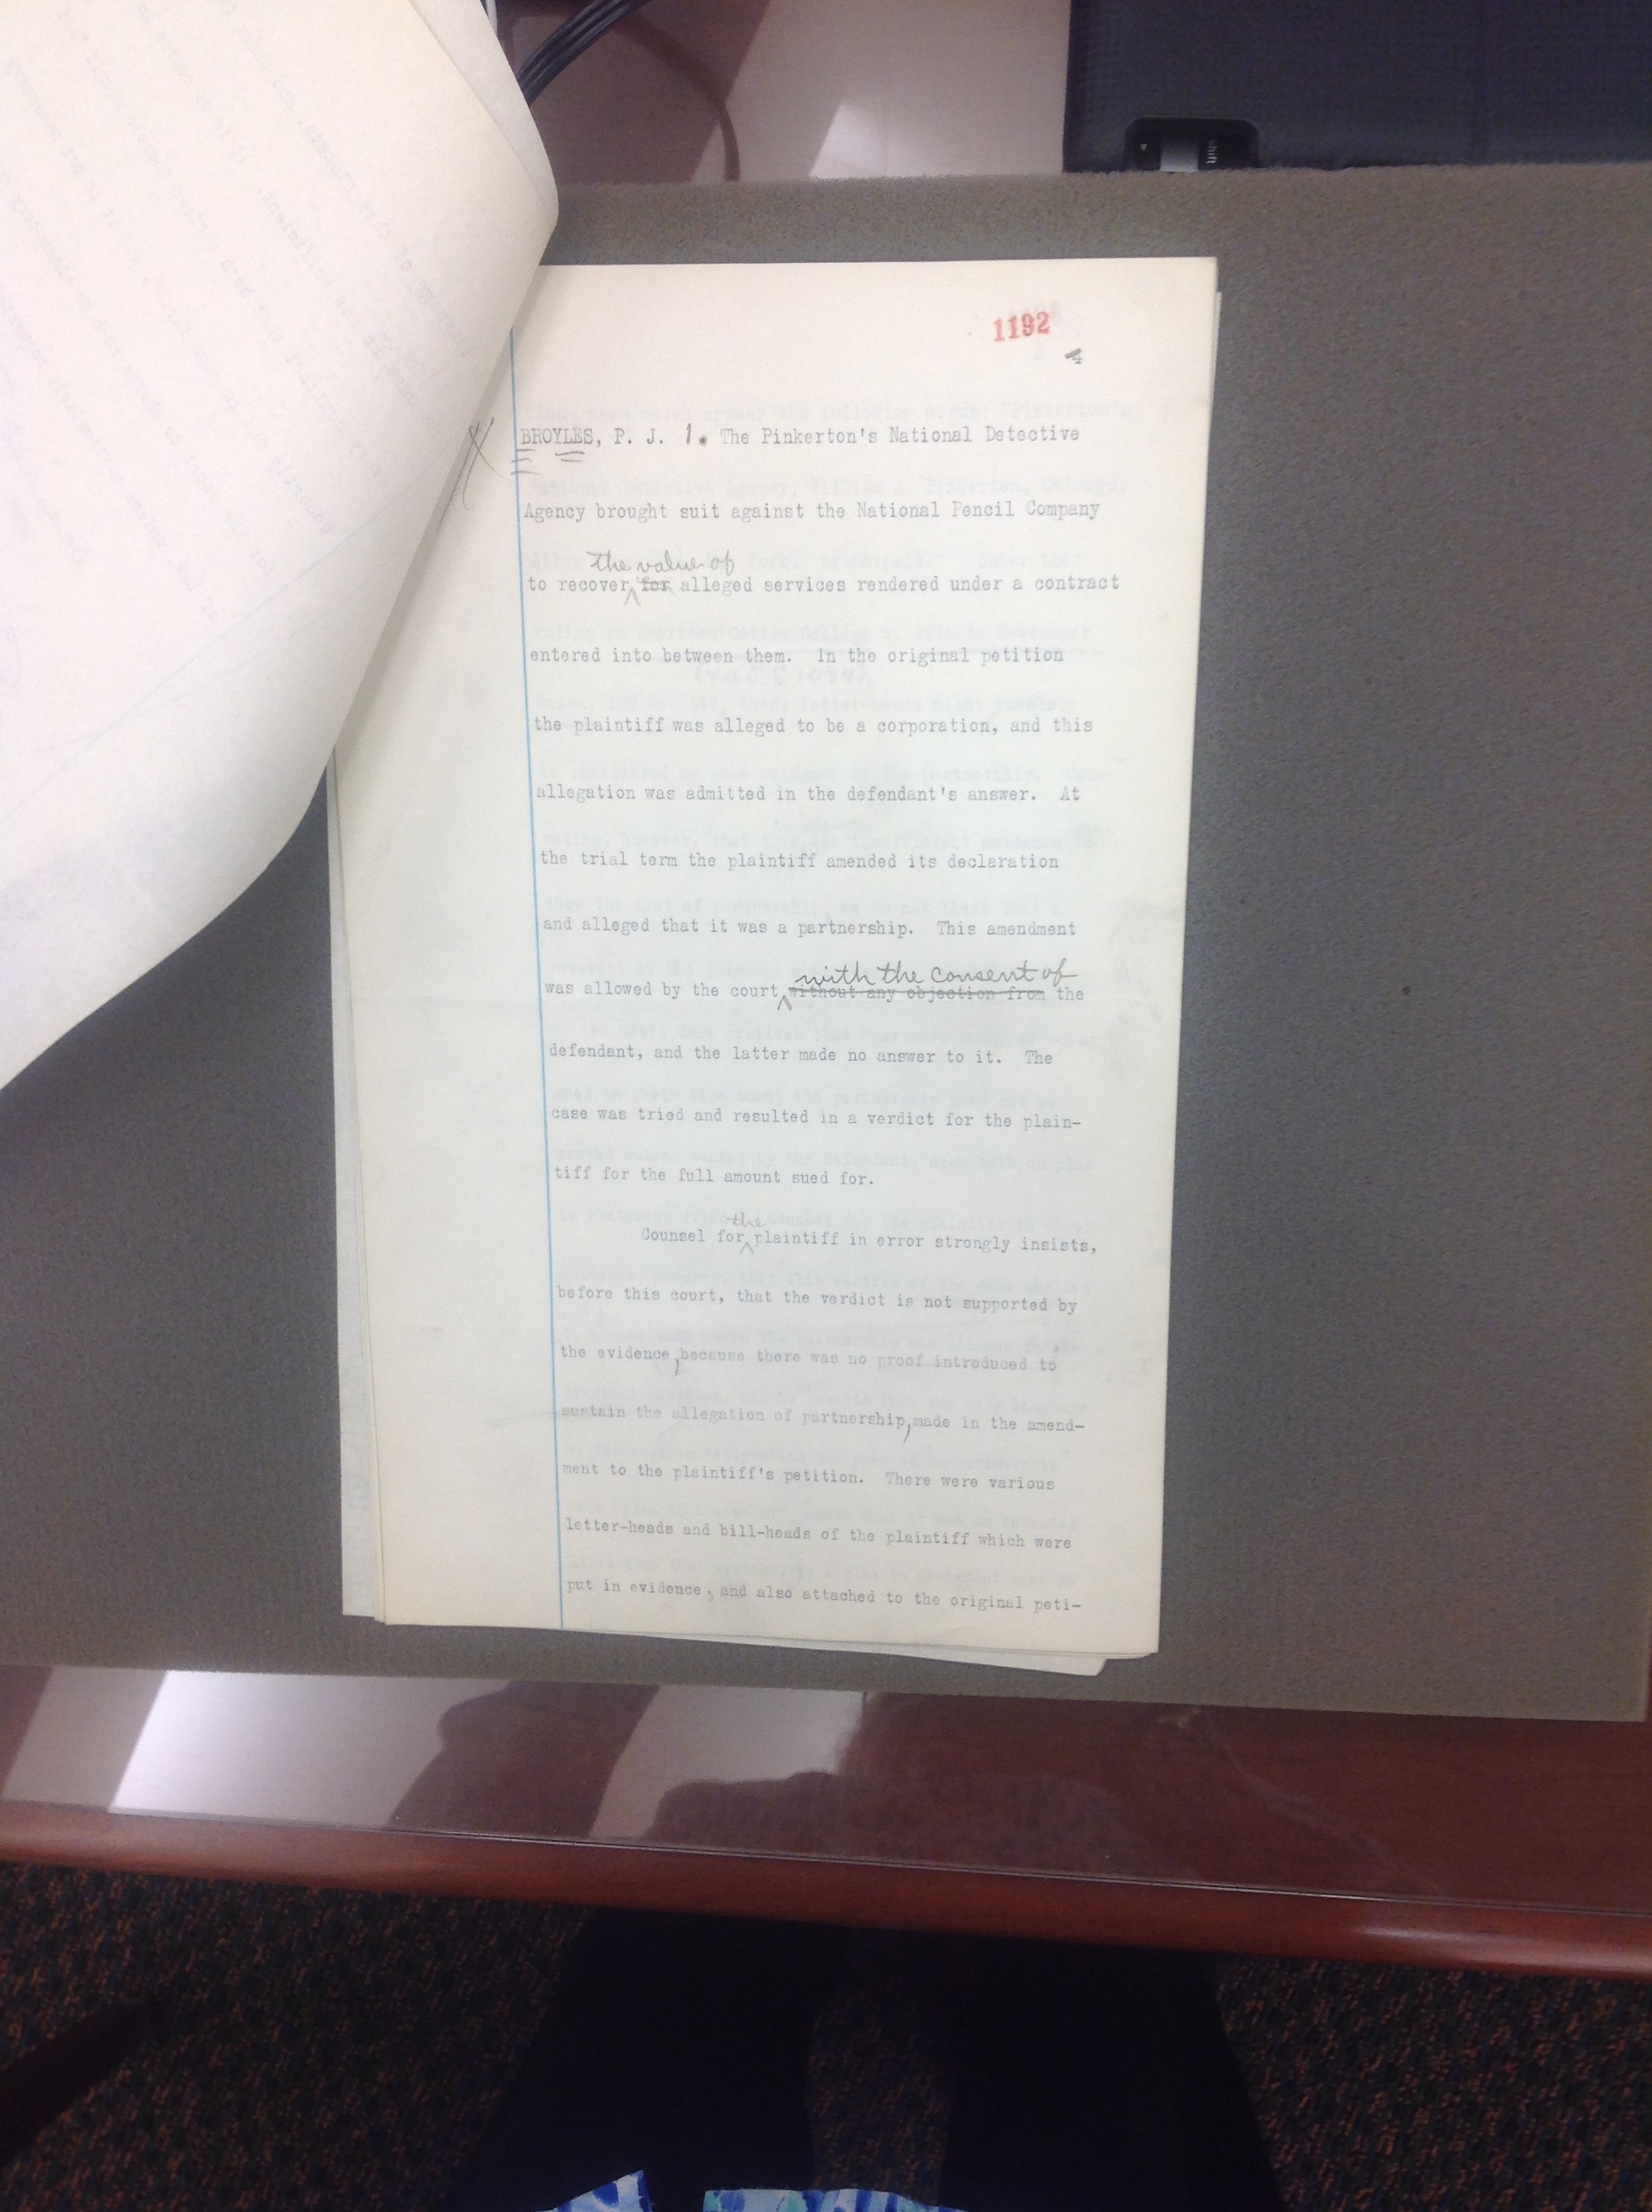 shift
1192
4
BROYLES, P. J. 1. The Pinkerton's National Detective
Agency brought suit against the National Pencil Company
the value of
to recover for alleged services rendered under a contract
entered into between them. In the original petition
the plaintiff was alleged to be a corporation, and this
allegation was admitted in the defendant's answer. At
the trial term the plaintiff amended its declaration
and alleged that it was a partnership. This amendment
with the consent of
was allowed by the court without any objection from the
defendant, and the latter made no answer to it. The
case was tried and resulted in a verdict for the plain-
tiff for the full amount sued for.
the
Counsel for plaintiff in error strongly insists,
before this court, that the verdict is not supported by
the evidence, because there was no proof introduced to
sustain the allegation of partnership, made in the amend-
ment to the plaintiff's petition. There were various
letter-heads and bill-heads of the plaintiff which were
put in evidence, and also attached to the original peti-